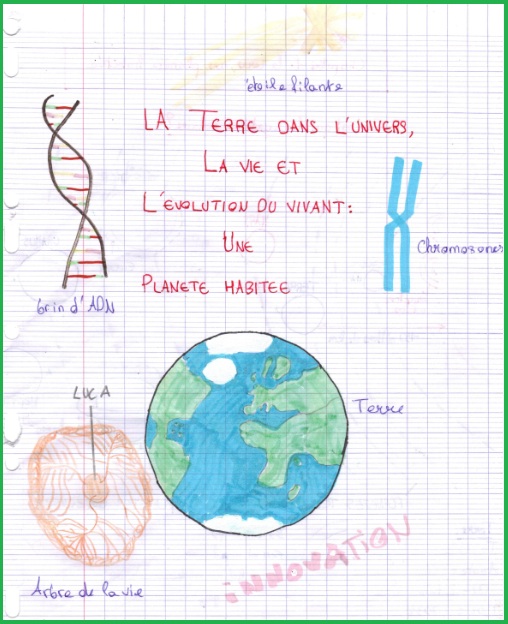 étoile filante
LA TERRE DANS L'UNIVERS,
LA VIE ET
L'ÉVOLUTION DU VIVANT:
UNE
PLANETE HABITEE
Chromosones
brin d'ADN
LUCA
Terre
INNOVATION
Arbre de la vie